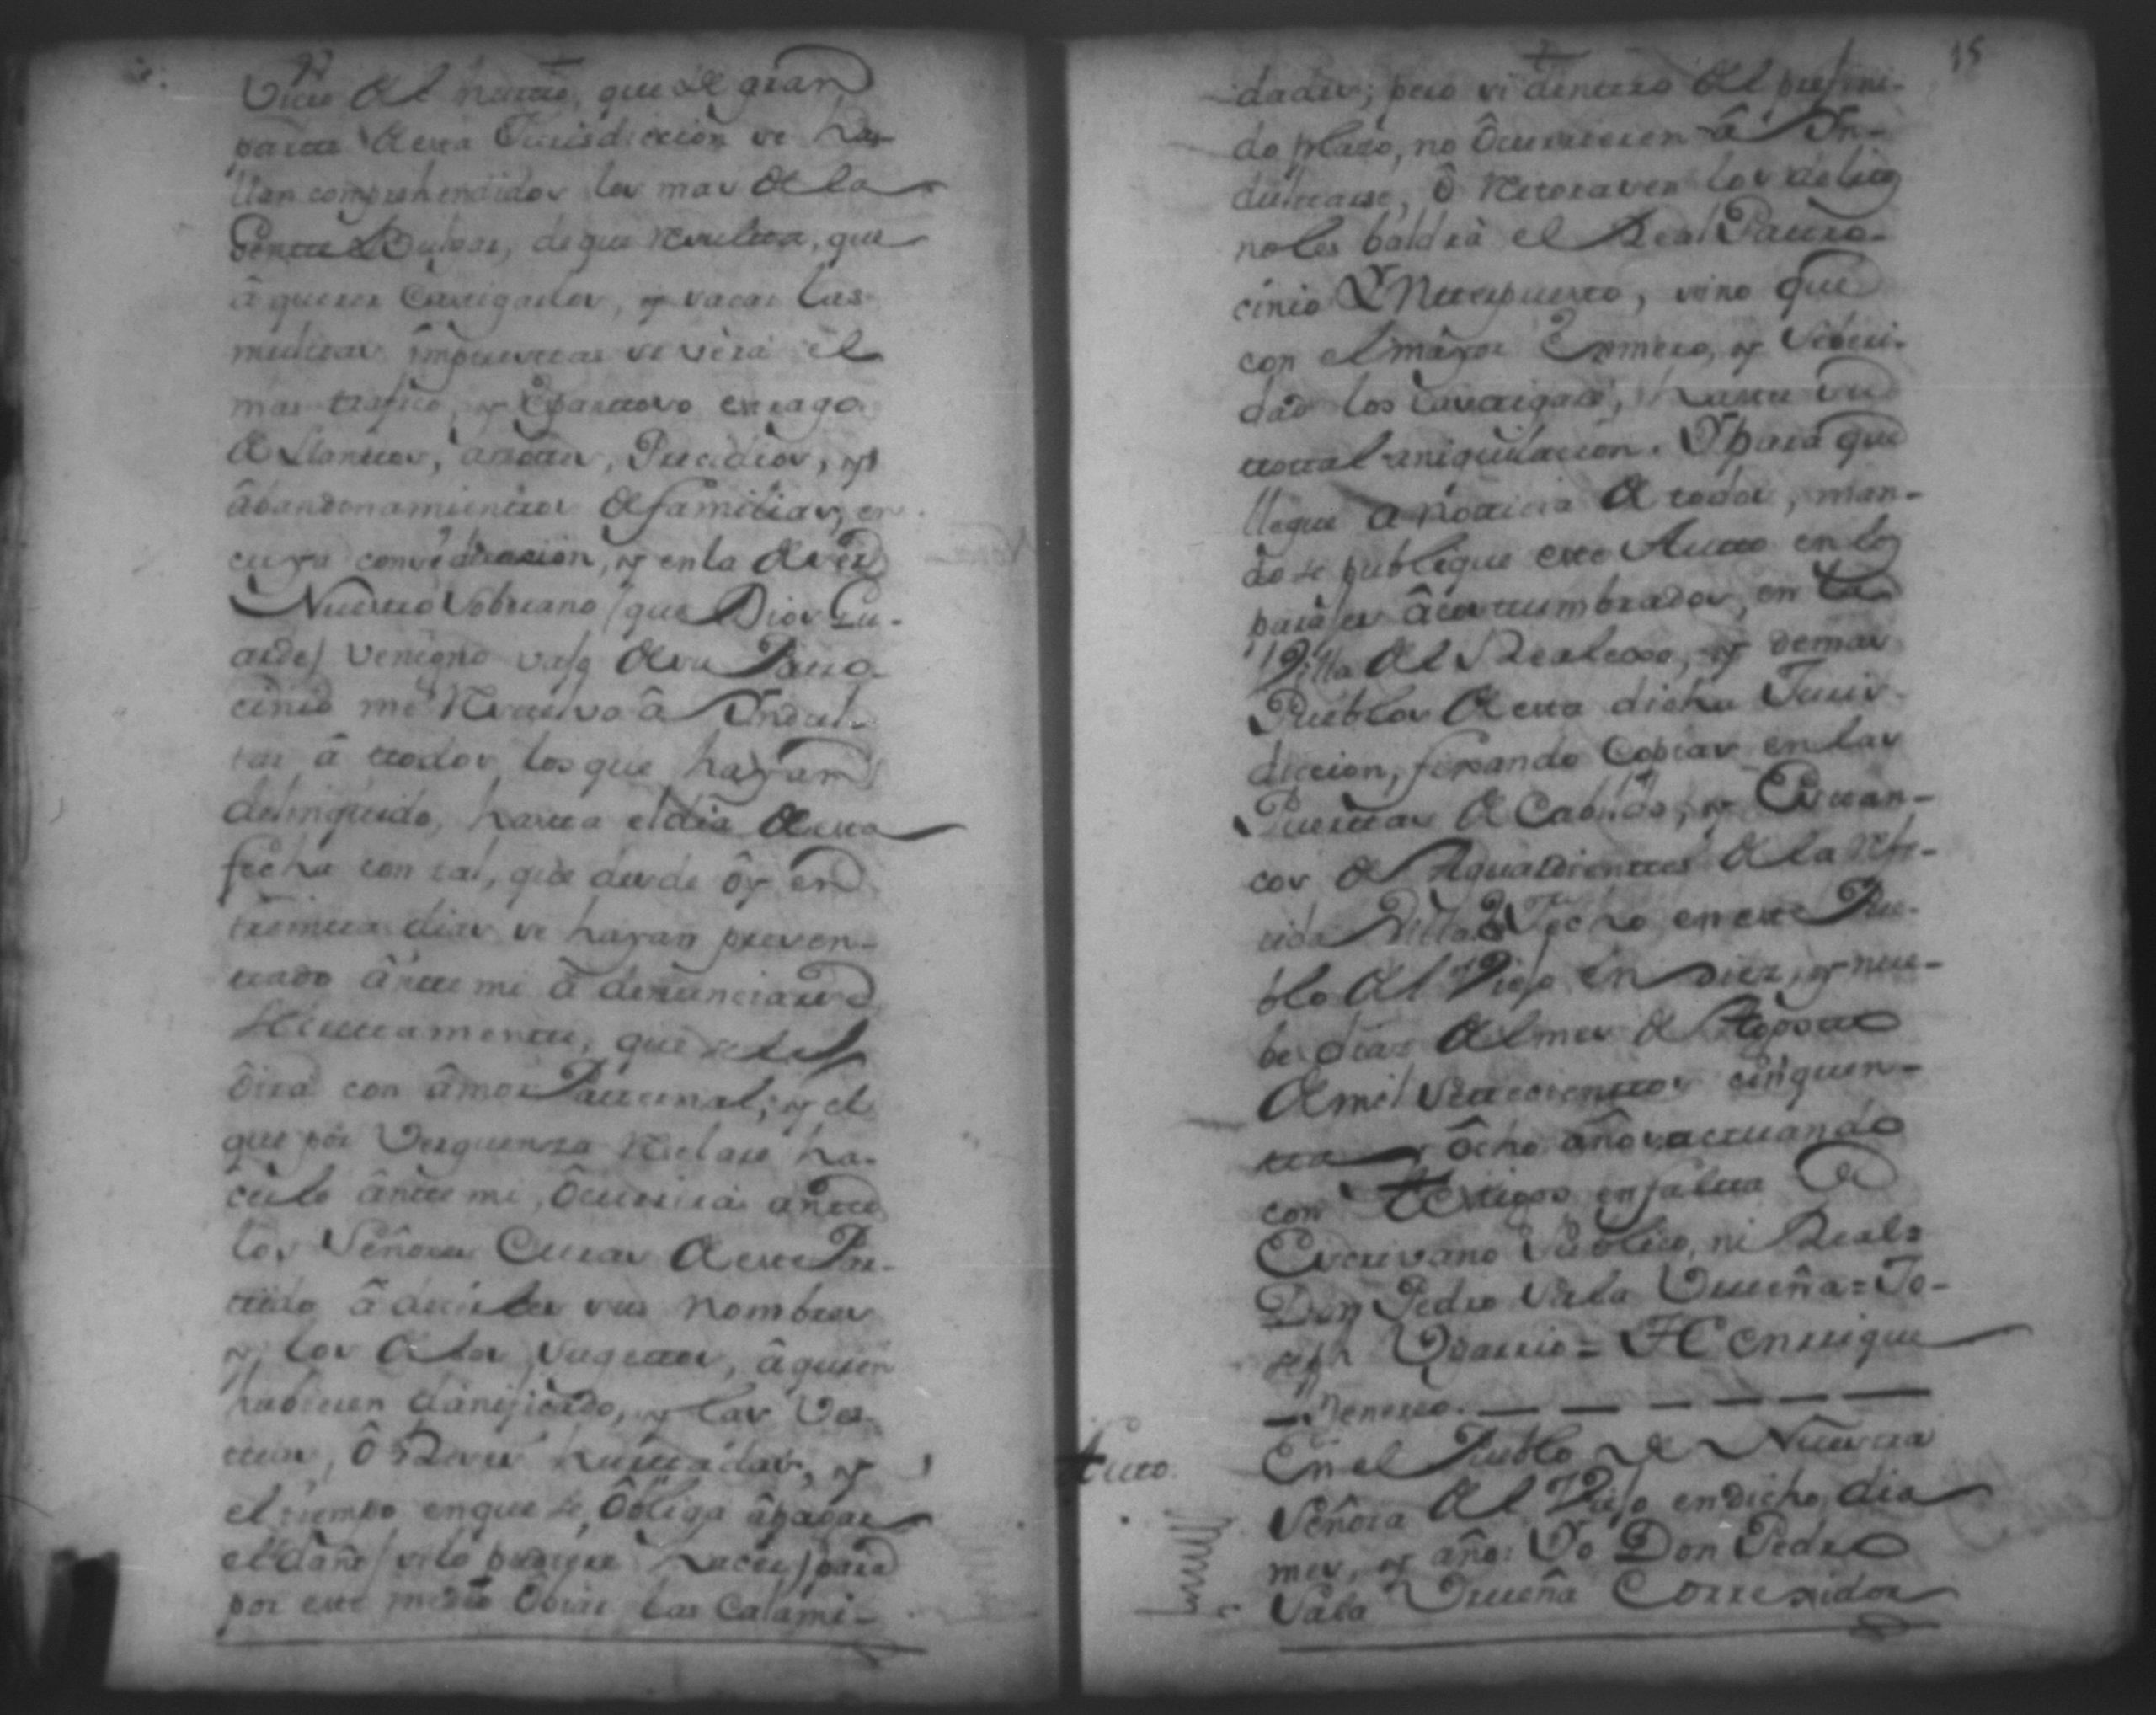 Vicio del hurtto, que de gran
partte de esta Jurisdiccion se ha-
llan comprehendidos los mas de la
Gentte Vulgar, de que resultta, que
â querer casttigarlos, y sacar las
multtas impuesttas se verà el
mas trafico, y espanttoso estrago
de Llanttos, Precidios, y
âbandonamienttos de familias, en
cuya concideracion, y en la de ser
Nuesttro Soberano (que Dios Gu-
arde) venigno vajo de su Pattro-
cinio me resuelvo â Yndul-
tar â ttodos los que hayan
delinquido, hastta el dia de estta
fecha con tal, que desde ôy en
treintta dias se hayan presen-
ttado ântte mi â denunciarse
secrettamentte, que se les
ôira con âmor Patternal; y el
que por Verguenza recelare ha-
cerlo ântte mi, ôcurrirà antte
los Señores Curas de estte Par-
ttido â decirles sus nombres
y los de los sugettos, â quien
hubiesen danificado, y las Ves-
ttias, ô Reses hurttadas, y
el tiempo en que se ôbliga âpagar
el daño (si lo pudiere hacer) para
por estte medio ôbiar las Calami-
15
dades; pero si denttro del prefini-
do plazo, no ôcurriesen â Yn-
dulttarse, ô retorasen los delitos
no les baldrà el Real Pattro-
cinio Ynterpuestto, sino que
con el mayor Esmero, y Seberi-
dad los casttigarè, hastta su
ttottal aniquilacion. Y para que
llegue a notticia de todos, man-
do se publique estte Autto en los
parajes âcosttumbrados, en la
Villa del Realexo, y demas
Pueblos de estta dicha Juris-
diccion, fixando Copias en las
Puerttas de Cabildo, y Esttan-
cos de Aguardienttes de la refe-
rida Villa Fecho en estte Pue-
blo del Viejo en diez, y nue-
be dias del mes de Agostto
de mil setteciencttos cinquen-
tta y ôcho años acttuando
con Testtigos en faltta de
Escrivano Publico, ni Real=
Don Pedro Vala Vrueña= Jo-
seph Vgarrio= Henrrique
Venerio. — — — — — —
Autto.
En el Pueblo de Nuesttra
Señora del Viejo en dicho dia
mes, y año: Yo Don Pedro
Vala Vrueña Correxidor